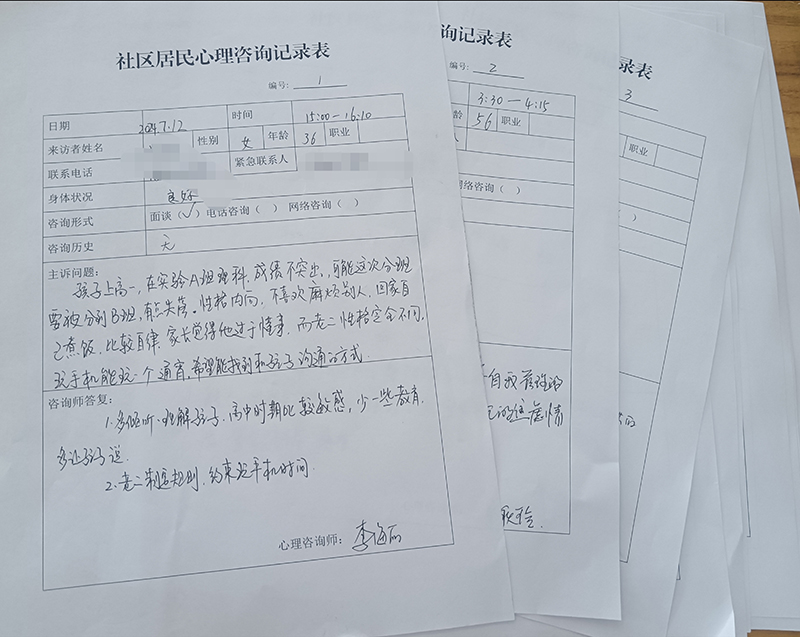 社区居民心理咨询记录表
编号: 1
日期 2024.7.12 时间 15:00—16:10
来访者姓名 性别 女 年龄 36 职业
联系电话 紧急联系人
身体状况 良好
咨询形式 面谈(√) 电话咨询( ) 网络咨询( )
咨询历史 无
主诉问题:
孩子上高一,在实验A班理科,成绩不突出,可能这次分班
需被分到B班,有点失落。性格内向,不喜欢麻烦别人,回家自
己煮饭,比较自律,家长觉得他过于懂事,而老二性格完全不同,
玩手机能玩一个通宵,希望能找到和孩子沟通的方式.
咨询师答复:
1.多倾听、理解孩子,高中时期比较敏感,少一些教育,
多让孩子说.
2.老二制定规则,约束玩手机时间.
心理咨询师: 李海丽
咨询记录表
编号: 2
3:30—4:15
龄 56 职业
网络咨询( )
自我
焦虑情
录表
3
职业
)
的